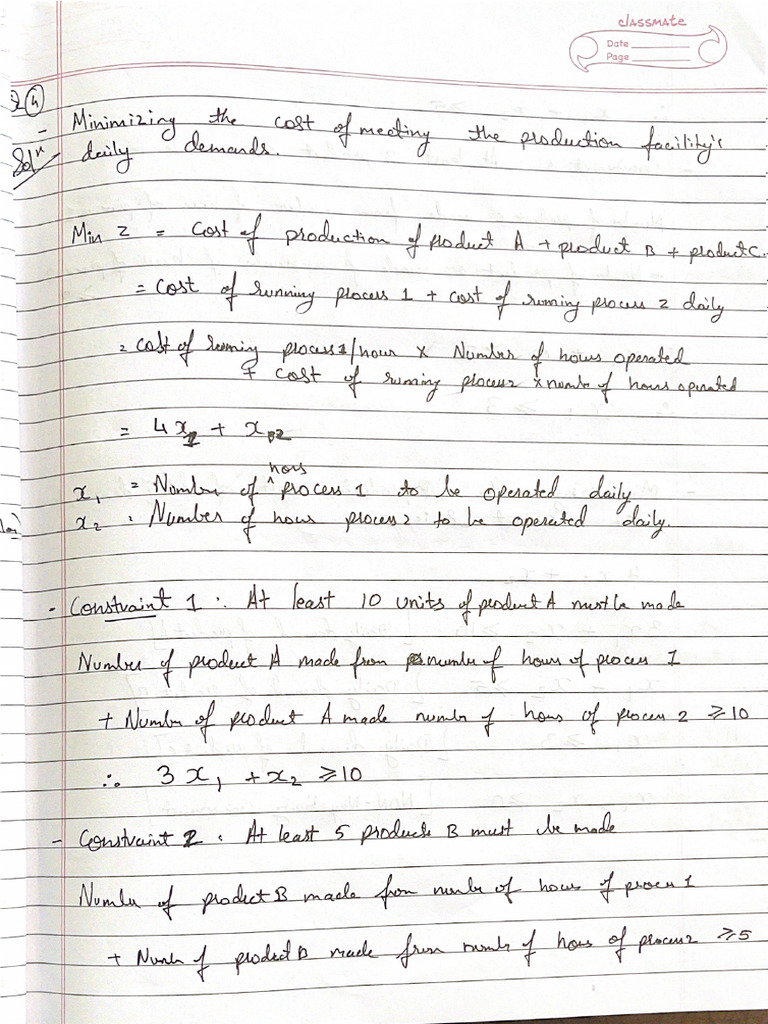 classmate
Date
Page
Q4
- Minimizing the cost of meeting the production facility's
Solⁿ daily demands.
Min Z = Cost of production of product A + product B + product C.
= Cost of running process 1 + cost of running process 2 daily
= cost of running process 1/hour × Number of hours operated
+ cost of running process 2 × number of hours operated
= 4x₁ + x₂
hours
x₁ = Number of ^ process 1 to be operated daily
x₂ = Number of hours process 2 to be operated daily.
- Constraint 1 : At least 10 units of product A must be made
Number of product A made from number of hours of process 1
+ Number of product A made number of hours of process 2 ≥ 10
∴ 3x₁ + x₂ ≥ 10
- Constraint 2 : At least 5 products B must be made
Number of product B made from number of hours of process 1
+ Number of product B made from number of hours of process 2 ≥ 5